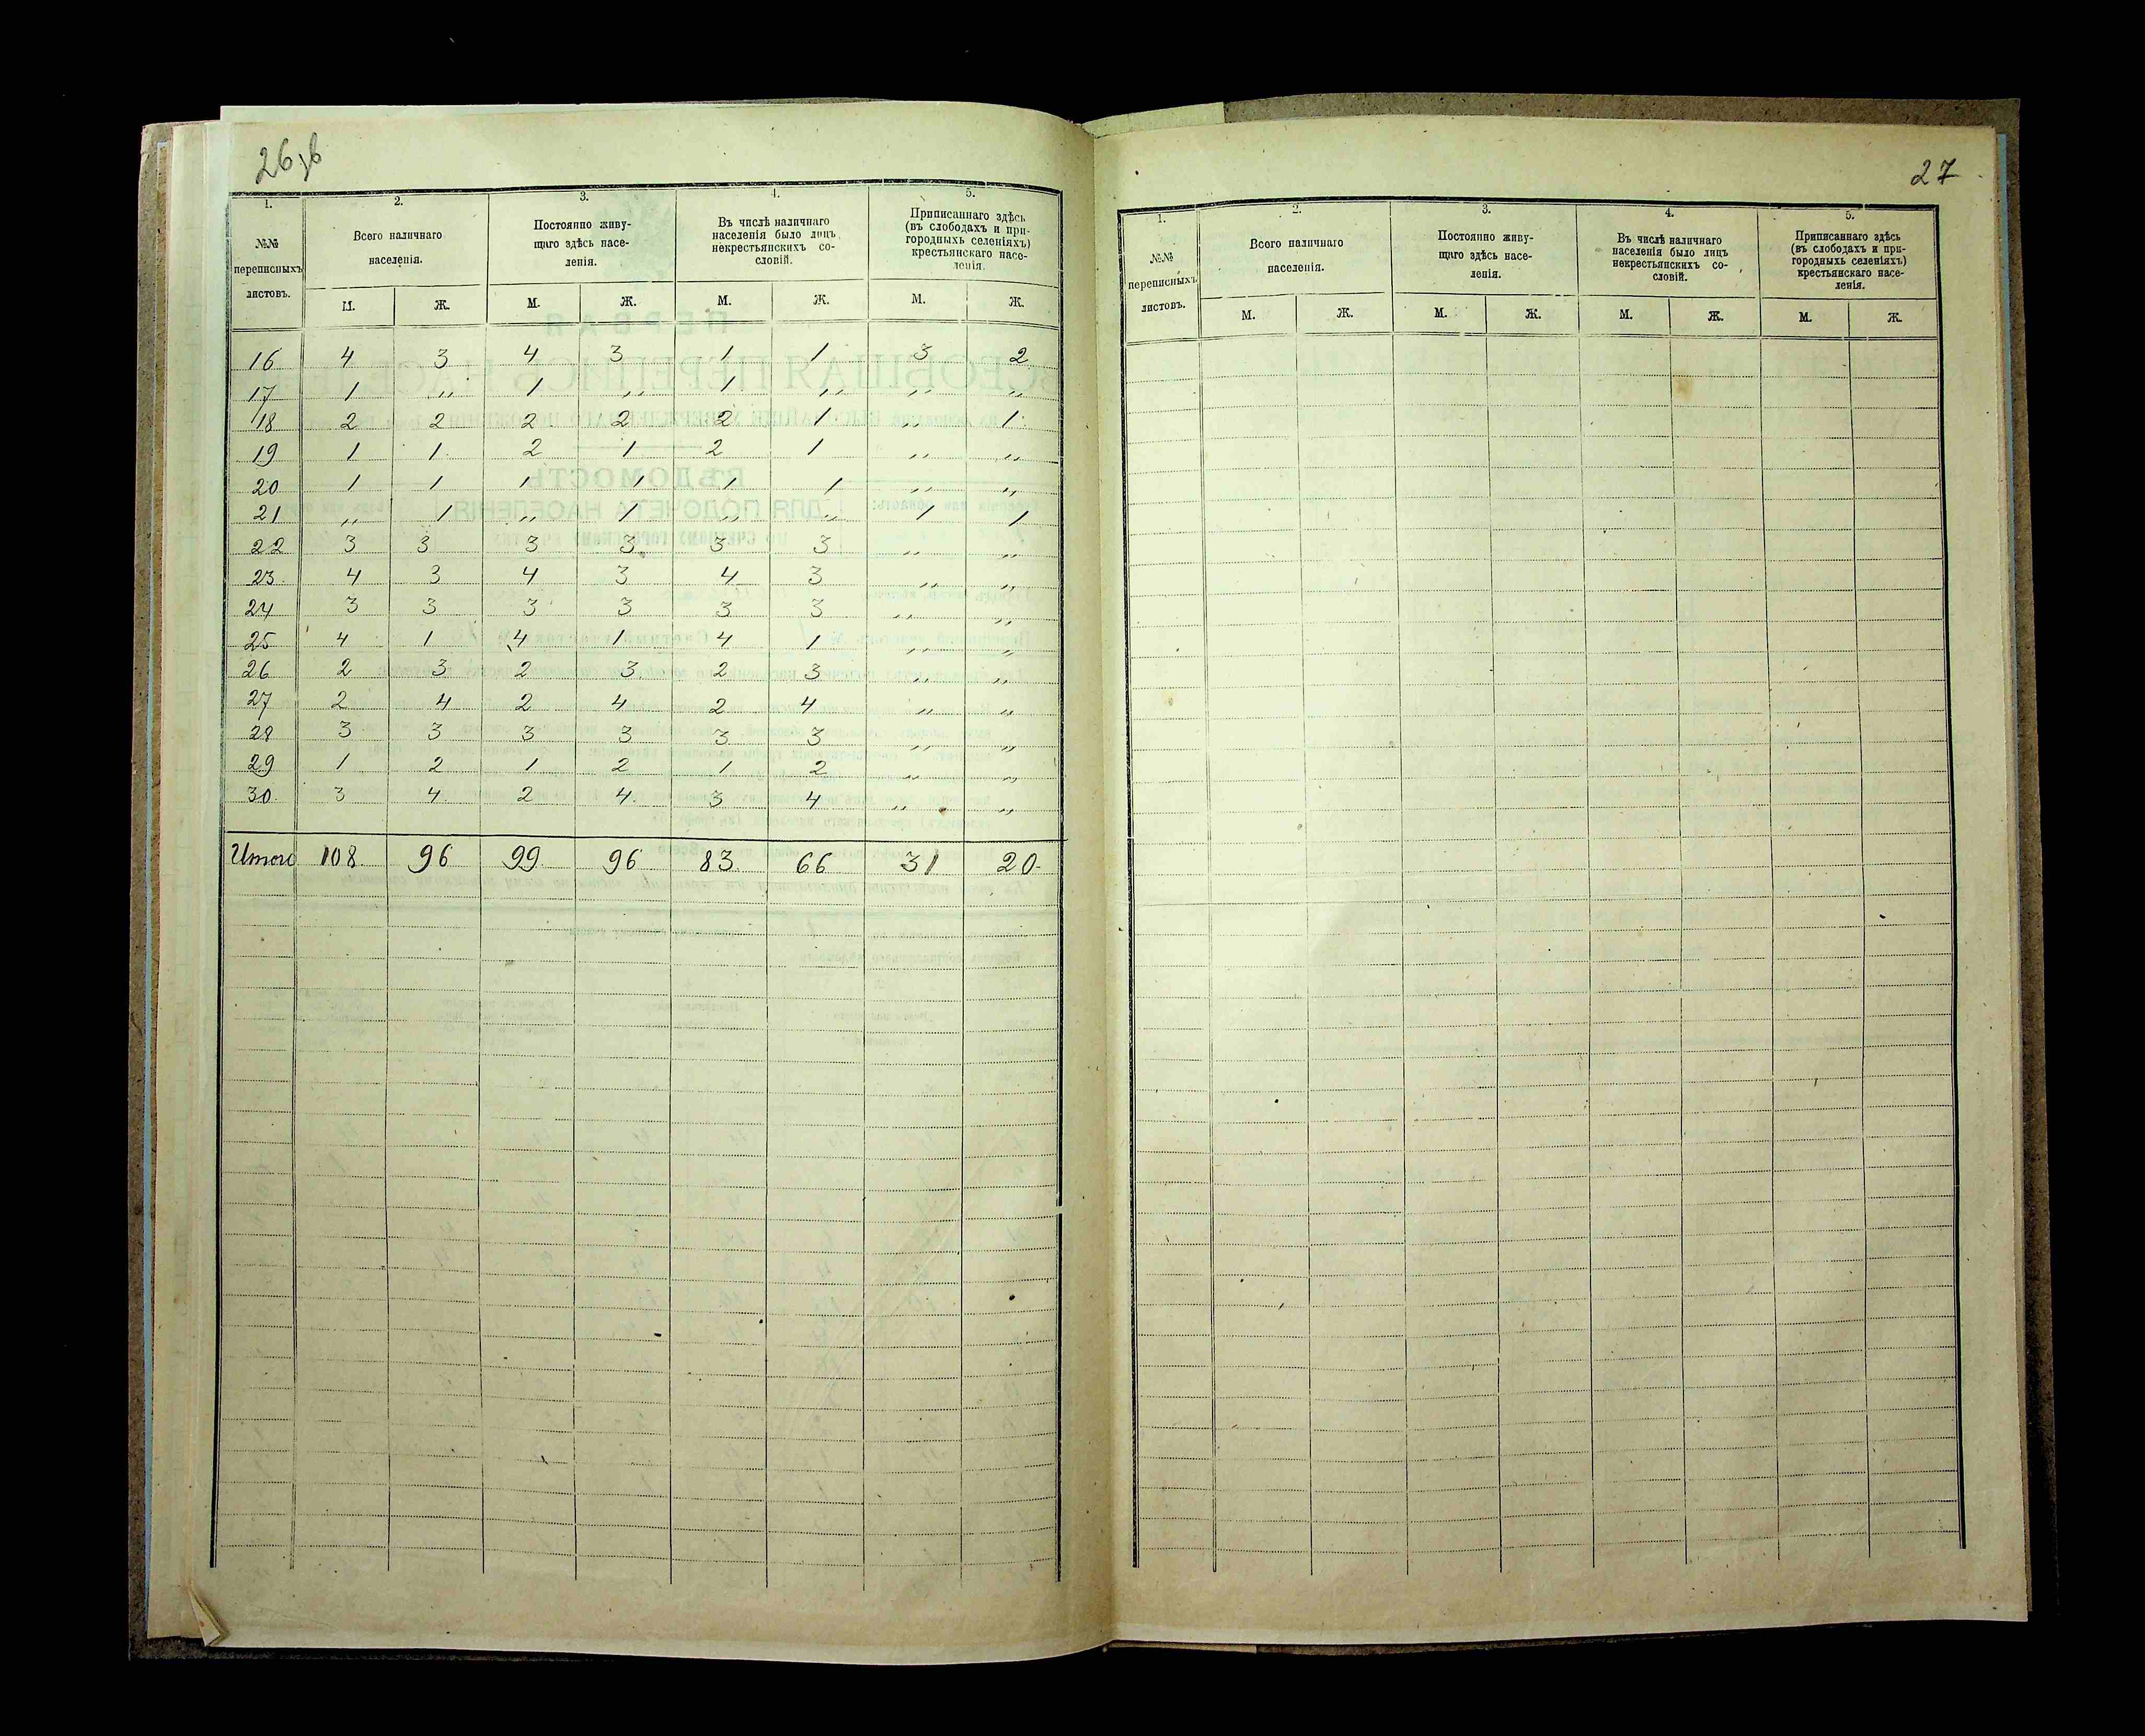 26зв
1. 2. 3. 4. 5.
№№ переписныхъ листовъ.
Всего наличнаго населенія.
Постоянно живущаго здѣсь населенія.
Въ числѣ наличнаго населенія было лицъ некрестьянскихъ сословій.
Приписаннаго здѣсь (въ слободахъ и пригородныхъ селеніяхъ) крестьянскаго населенія.
М. Ж. М. Ж. М. Ж. М. Ж.
16 4 3 4 3 1 1 3 2
17 1 „ 1 „ 1 „ „ „
18 2 2 2 2 2 1 „ 1
19 1 1 2 1 2 1 „ „
20 1 1 1 1 1 1 „ „
21 „ 1 „ 1 „ „ 1 1
22 3 3 3 3 3 3 „ „
23 4 3 4 3 4 3 „ „
24 3 3 3 3 3 3 „ „
25 4 1 4 1 4 1 „ „
26 2 3 2 3 2 3 „ „
27 2 4 2 4 2 4 „ „
28 3 3 3 3 3 3 „ „
29 1 2 1 2 1 2 „ „
30 3 4 2 4 3 4 „ „
Итого 108 96 99 96 83 66 31 20
27
1. 2. 3. 4. 5.
№№ переписныхъ листовъ.
Всего наличнаго населенія.
Постоянно живущаго здѣсь населенія.
Въ числѣ наличнаго населенія было лицъ некрестьянскихъ сословій.
Приписаннаго здѣсь (въ слободахъ и пригородныхъ селеніяхъ) крестьянскаго населенія.
М. Ж. М. Ж. М. Ж. М. Ж.